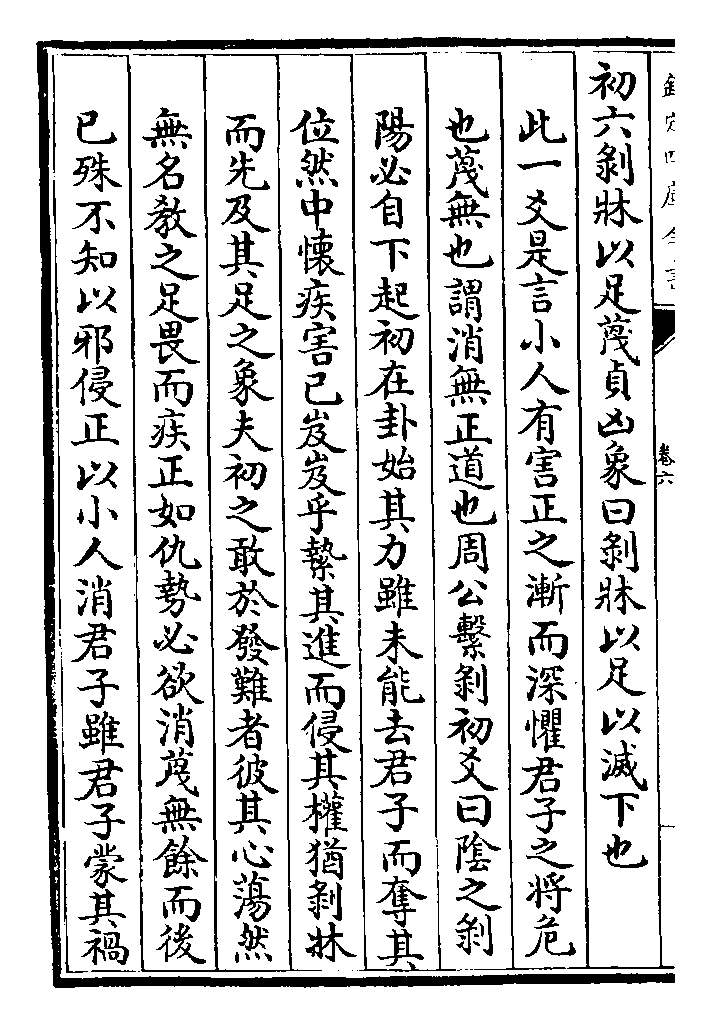 欽定四庫全書
卷六
初六剝牀以足蔑貞凶象曰剝牀以足以滅下也
此一爻是言小人有害正之漸而深懼君子之將危
也蔑無也謂消無正道也周公繫剝初爻曰陰之剝
陽必自下起初在卦始其力雖未能去君子而奪其
位然中懷疾害已岌岌乎縶其進而侵其權猶剝牀
而先及其足之象夫初之敢於發難者彼其心蕩然
無名教之足畏而疾正如仇勢必欲消蔑無餘而後
已殊不知以邪侵正以小人消君子雖君子蒙其禍